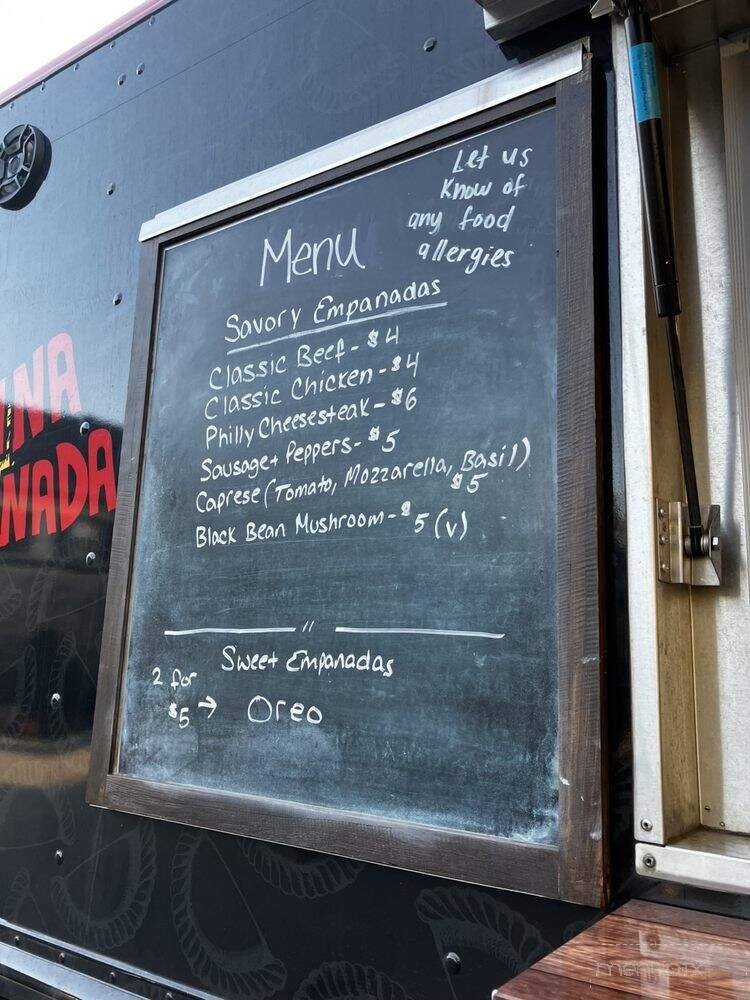 Let us
Know of
any food
allergies
Menu
Savory Empanadas
Classic Beef - $4
Classic Chicken - $4
Philly Cheesesteak - $6
Sausage + Peppers - $5
Caprese (Tomato, Mozzarella, Basil)
$5
Black Bean Mushroom - $5 (v)
Sweet Empanadas
2 for
$5 → Oreo
INA
NADA